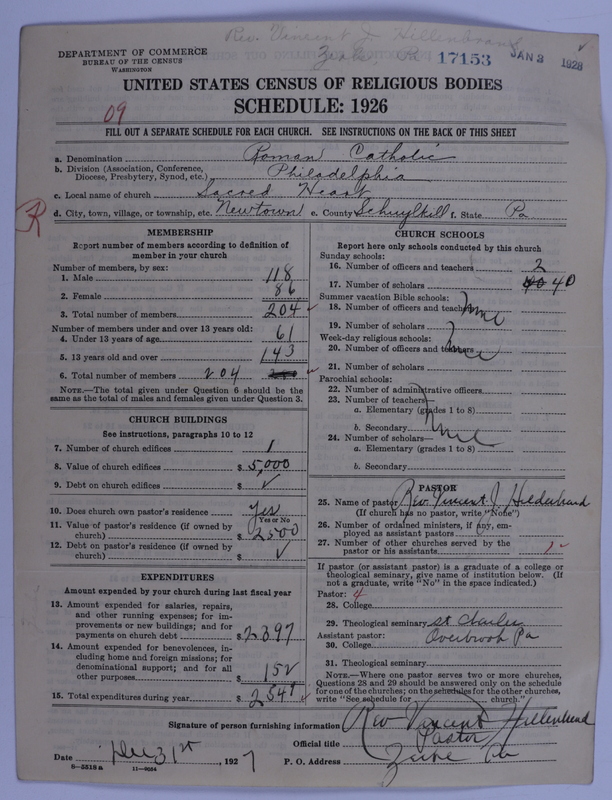 Rev. Vincent J. Hillenbrand
DEPARTMENT OF COMMERCE
BUREAU OF THE CENSUS
WASHINGTON
17153 JAN 3 1928
UNITED STATES CENSUS OF RELIGIOUS BODIES
SCHEDULE: 1926
09
FILL OUT A SEPARATE SCHEDULE FOR EACH CHURCH. SEE INSTRUCTIONS ON THE BACK OF THIS SHEET
a. Denomination Roman Catholic
b. Division (Association, Conference, Diocese, Presbytery, Synod, etc.) Philadelphia
c. Local name of church Sacred Heart
d. City, town, village, or township, etc. Newtown e. County Schuylkill f. State Pa
R
MEMBERSHIP
Report number of members according to definition of
member in your church
Number of members, by sex:
1. Male 118
2. Female 86
3. Total number of members 204
Number of members under and over 13 years old:
4. Under 13 years of age 61
5. 13 years old and over 143
6. Total number of members 204
NOTE.—The total given under Question 6 should be
same as the total of males and females given under Question 3.
CHURCH BUILDINGS
See instructions, paragraphs 10 to 12
7. Number of church edifices 1
8. Value of church edifices $ 5,000
9. Debt on church edifices $ ✓
10. Does church own pastor's residence? Yes
Yes or No
11. Value of pastor's residence (if owned by
church) $ 2500
12. Debt on pastor's residence (if owned by
church) $ ✓
EXPENDITURES
Amount expended by your church during last fiscal year
13. Amount expended for salaries, repairs,
and other running expenses; for im-
provements or new buildings; and for
payments on church debt $ 2397
14. Amount expended for benevolences, in-
cluding home and foreign missions; for
denominational support; and for all
other purposes $ 152
15. Total expenditures during year $
CHURCH SCHOOLS
Report here only schools conducted by this church
Sunday schools:
16. Number of officers and teachers 2
17. Number of scholars 40 40
Summer vacation Bible schools:
18. Number of officers and teachers
19. Number of scholars
Week-day religious schools:
20. Number of officers and teachers
21. Number of scholars
Parochial schools:
22. Number of administrative officers
23. Number of teachers—
a. Elementary (grades 1 to 8)
b. Secondary
24. Number of scholars—
a. Elementary (grades 1 to 8)
b. Secondary
PASTOR
25. Name of pastor Rev. Vincent J. Hildenbrand
(If church has no pastor, write "None")
26. Number of ordained ministers, if any, em-
ployed as assistant pastors
27. Number of other churches served by the
pastor or his assistants 1
If pastor (or assistant pastor) is a graduate of a college or
theological seminary, give name of institution below. (If
not a graduate, write "No" in the space indicated.)
Pastor: 4
28. College
29. Theological seminary St Charles
Assistant pastor: Overbrook Pa
30. College
31. Theological seminary
NOTE.—Where one pastor serves two or more churches,
Questions 28 and 29 should be answered only on the schedule
for one of the churches; on the schedules for the other churches,
write "See schedule for church."
Signature of person furnishing information Rev Vincent J Hillenbrand
Official title Pastor
Date Dec 31st, 1927 P. O. Address Pa
8-5518a 11-9054